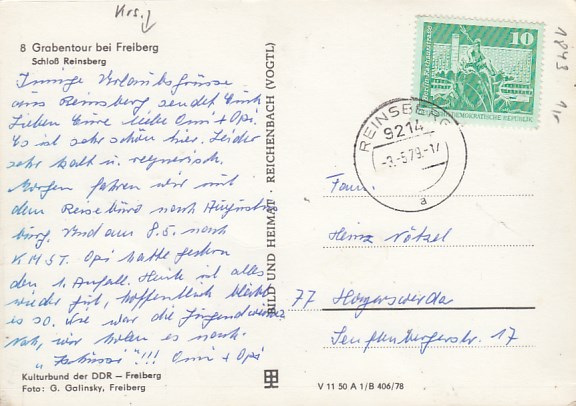 Krs.
8 Grabentour bei Freiberg
Schloß Reinsberg
Innige Urlaubsgrüsse
aus Reinsberg sendet Euch
Lieben Eure liebe Omi + Opi.
Es ist sehr schön hier. Leider
sehr kalt u. regnerisch.
Morgen fahren wir mit
dem Reisebüro nach Augustus
burg. Und am 8.5. nach
K.M.ST. Opi hatte gestern
den 1. Anfall. Heute ist alles
wieder gut, hoffentlich bleibt
es so. Wie war die Jugendweihe
Nah, wir holen es nach.
"!!! Omi + Opi
Kulturbund der DDR — Freiberg
Foto: G. Galinsky, Freiberg
BILD UND HEIMAT · REICHENBACH (VOGTL)
10
DEUTSCHE DEMOKRATISCHE REPUBLIK
REINSBERG
9214
-3.-5.79.-17
a
1843
Fam.
Heinz Nötzel
77 Hoyerswerda
Senftenbergerstr. 17
V 11 50 A 1/B 406/78